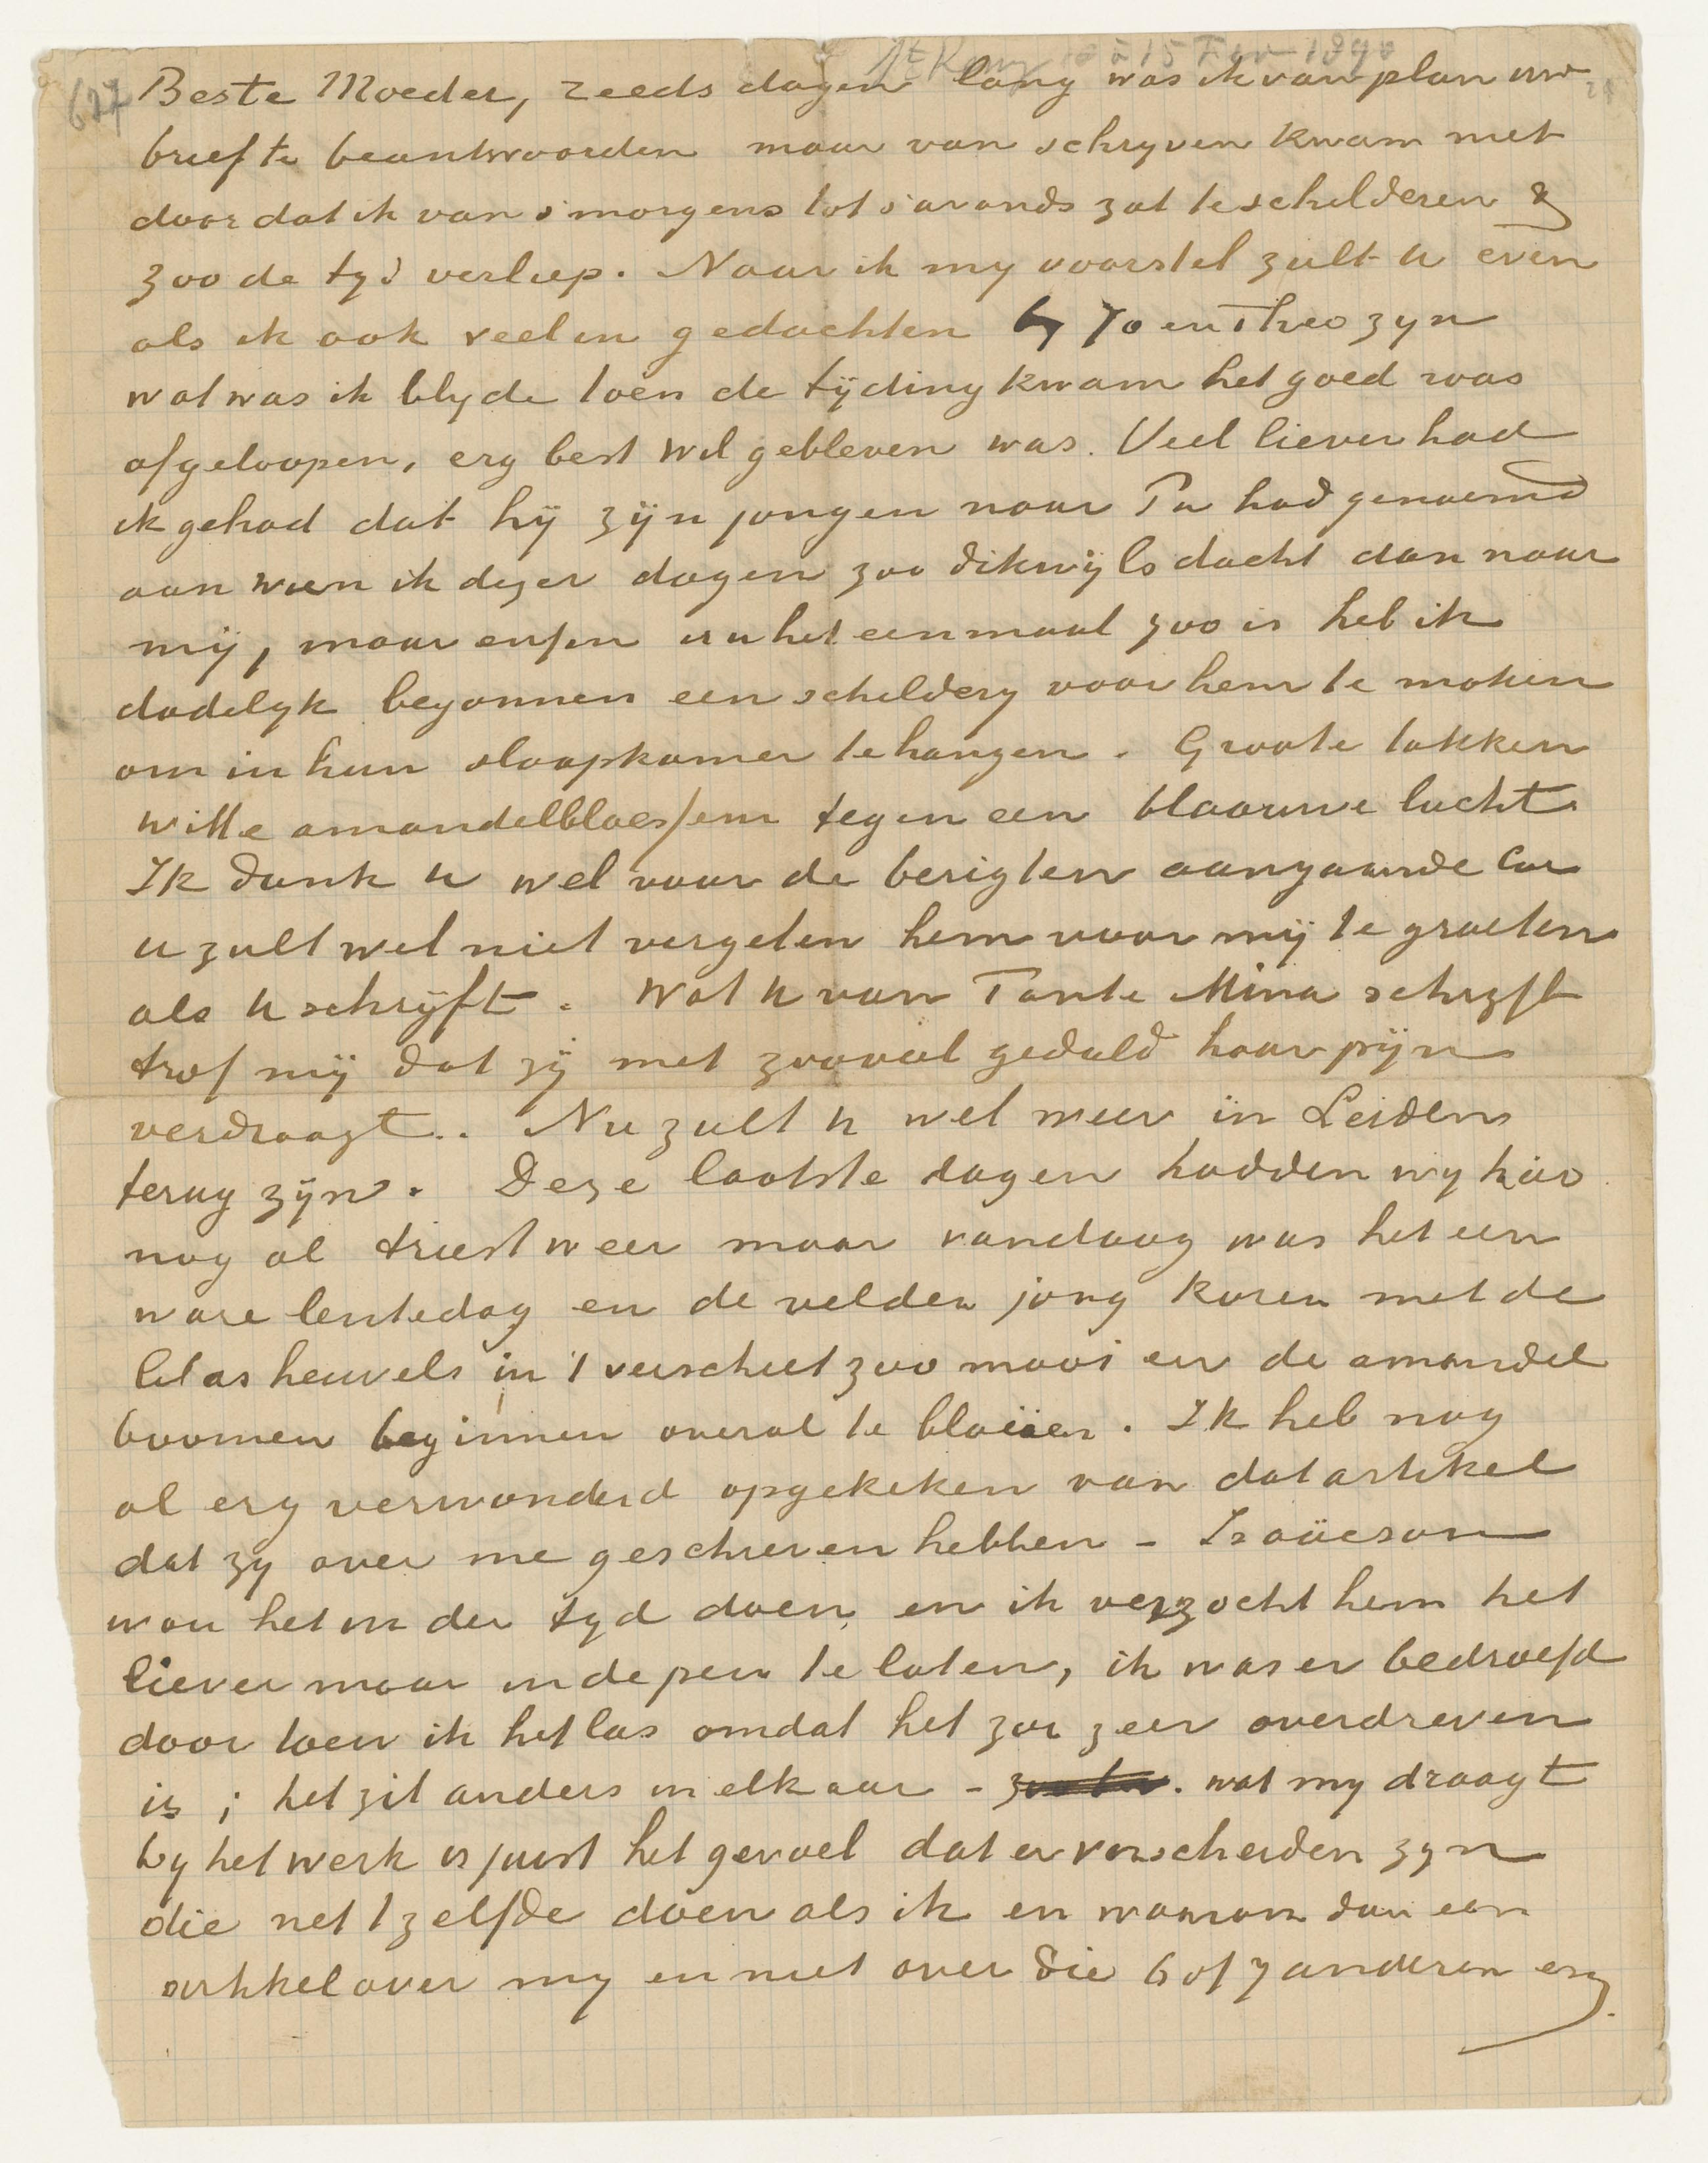 627
St Remy 10 à 15 Fev 1890
Beste Moeder, reeds dagen lang was ik van plan uw
brief te beantwoorden maar van schryven kwam niet
doordat ik van s'morgens tot s'avonds zat te schilderen &
zoo de tyd verliep. Naar ik my voorstel zult U even
als ik ook veel in gedachten by Jo en Theo zyn
wat was ik blyde toen de tijding kwam het goed was
afgeloopen, erg best Wil gebleven was. Veel liever had
ik gehad dat hij zijn jongen naar Pa had genoemd
aan wien ik dezer dagen zoo dikwijls dacht dan naar
mij, maar enfin nu het eenmaal zoo is heb ik
dadelyk begonnen een schildery voor hem te maken
om in hun slaapkamer te hangen. Groote takken
witte amandelbloessem tegen een blaauwe lucht
Ik dank U wel voor de berigten aangaande Cor
u zult wel niet vergeten hem voor mij te groeten
als U schrijft. Wat U van Tante Mina schryft
trof mij dat zij met zooveel geduld haar pijn
verdraagt.. Nu zult U wel weer in Leiden
terug zijn. Deze laatste dagen hadden wy hier
nog al triest weer maar vandaag was het een
ware lentedag en de velden jong koren met de
lilas heuvels in 't verschiet zoo mooi en de amandel
boomen beginnen overal te bloeien. Ik heb nog
al erg verwonderd opgekeken van dat artikel
dat zy over me geschreven hebben – Isaäcson
wou het in der tyd doen en ik verzocht hem het
liever maar in de pen te laten, ik was er bedroefd
door toen ik het las omdat het zoo zeer overdreven
is; het zit anders in elkaar – wat my draagt
by het werk is juist het gevoel dat er verscheiden zyn
die net 't zelfde doen als ik en waarom dan een
artikel over my en niet over die 6 of 7 anderen enz.